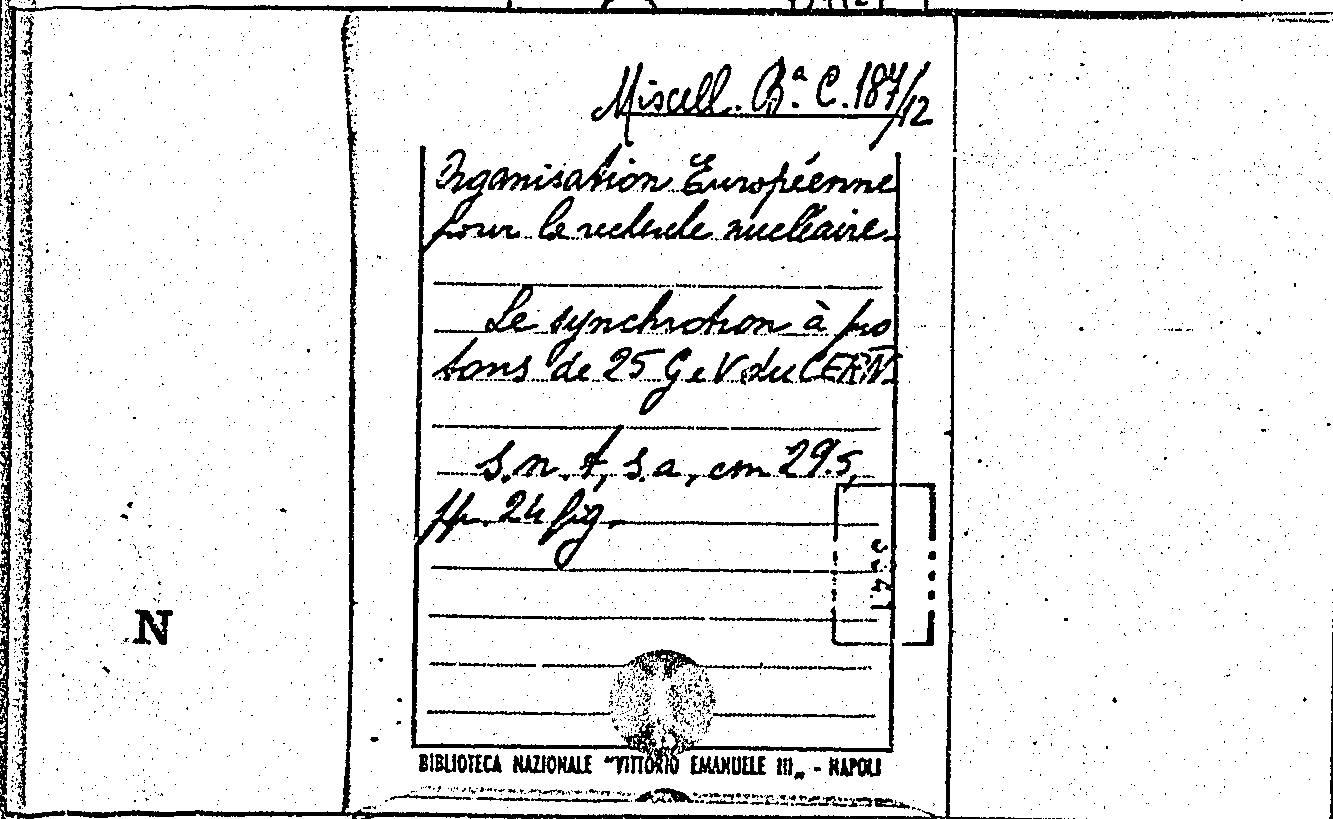 Miscell. Bª. C. 187/12
Organisation Européenne
pour la recherche nucléaire.
Le synchrotron à pro
tons de 25 GeV du CERN.
s.n.t, s.a, cm 29.5,
pp. 24 fig.
N
BIBLIOTECA NAZIONALE "VITTORIO EMANUELE III„ - NAPOLI